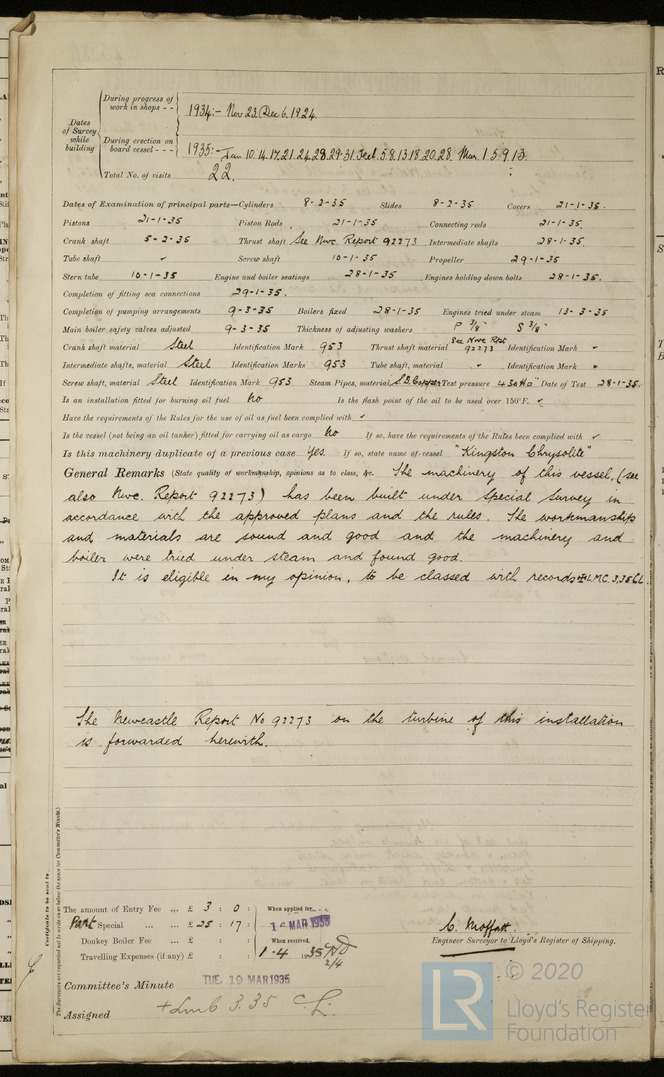 During progress of work in shops - - 1934:- Nov 23. Dec 6. 1924.
Dates of Survey while building
During erection on board vessel - - - 1935:- Jan 10. 14. 17. 21. 24. 28. 29. 31. Feb. 5. 8. 13. 18. 20. 28. Mar. 1 5 9 13.
Total No. of visits 22.
Dates of Examination of principal parts—Cylinders 8-2-35 Slides 8-2-35 Covers 21-1-35.
Pistons 21-1-35 Piston Rods 21-1-35 Connecting rods 21-1-35.
Crank shaft 5-2-35 Thrust shaft See Nwc. Report 92273 Intermediate shafts 28-1-35.
Tube shaft ✓ Screw shaft 10-1-35 Propeller 29-1-35
Stern tube 10-1-35 Engine and boiler seatings 28-1-35 Engines holding down bolts 28-1-35.
Completion of fitting sea connections 29-1-35.
Completion of pumping arrangements 9-3-35 Boilers fixed 28-1-35 Engines tried under steam 13-3-35
Main boiler safety valves adjusted 9-3-35 Thickness of adjusting washers P 3/8" S 3/8"
Crank shaft material Steel Identification Mark 953 Thrust shaft material See Nwc Rpt 92273 Identification Mark "
Intermediate shafts, material Steel Identification Marks 953 Tube shaft, material " Identification Mark "
Screw shaft, material Steel Identification Mark 953 Steam Pipes, material S.D. Copper Test pressure 430 lbs" Date of Test 28-1-35.
Is an installation fitted for burning oil fuel No Is the flash point of the oil to be used over 150°F. ✓
Have the requirements of the Rules for the use of oil as fuel been complied with ✓
Is the vessel (not being an oil tanker) fitted for carrying oil as cargo No If so, have the requirements of the Rules been complied with ✓
Is this machinery duplicate of a previous case Yes. If so, state name of vessel "Kingston Chrysolite"
General Remarks (State quality of workmanship, opinions as to class, &c. The machinery of this vessel, (see
also Nwc. Report 92273) has been built under Special Survey in
accordance with the approved plans and the rules. The workmanship
and materials are sound and good and the machinery and
boiler were tried under steam and found good.
It is eligible in my opinion, to be classed with records + L.M.C. 3,35 C.L.
The Newcastle Report No 92273 on the turbine of this installation
is forwarded herewith.
Certificate to be sent to
The Surveyors are requested not to write on or below the space for Committee's Minute.
The amount of Entry Fee ... £ 3 : 0 : When applied for,
Part Special ... £ 25 : 17 : MAR 1935
Donkey Boiler Fee ... £ : : When received,
Travelling Expenses (if any) £ : : 1-4 1935 2/4
C. Moffatt.
Engineer Surveyor to Lloyd's Register of Shipping.
Committee's Minute TUE. 19 MAR 1935
Assigned + Lmc 3.35 C.L.
LR © 2020
Lloyd's Register
Foundation